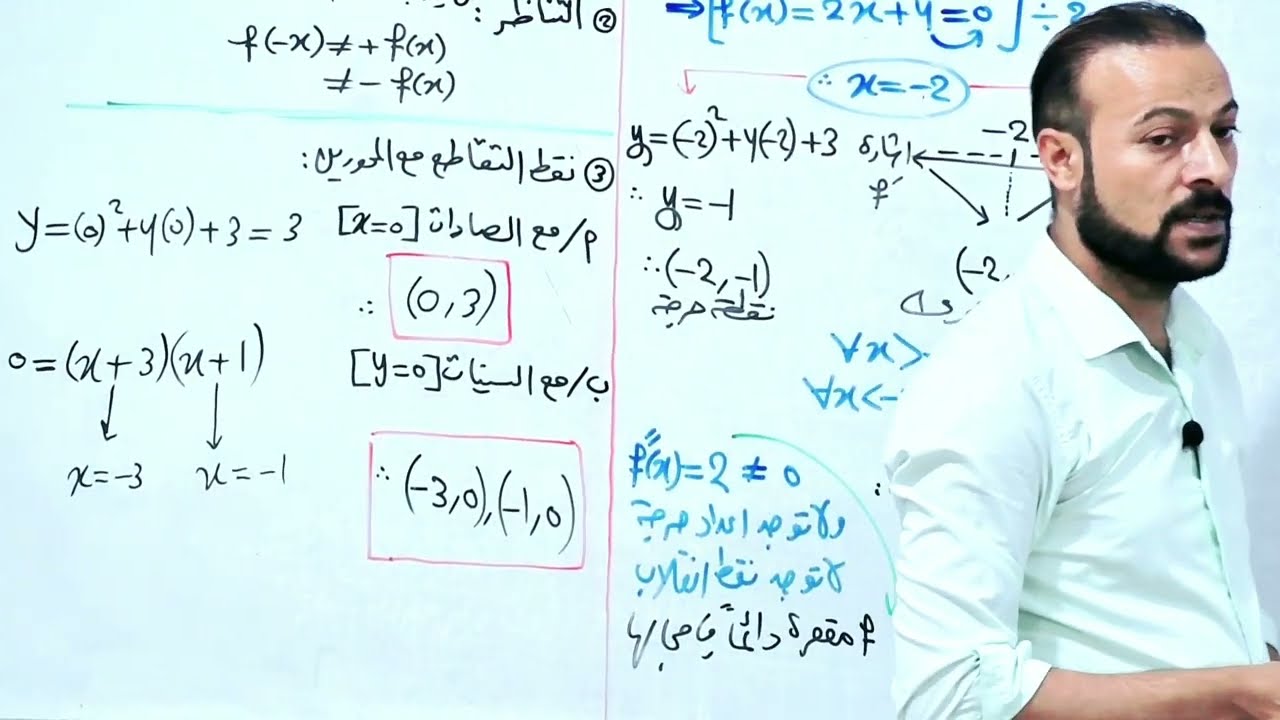 ② التناظر :
f(-x) ≠ + f(x)
≠ - f(x)
③ نقط التقاطع مع المحورين :
م/ مع الصادات [x=0] y=(0)²+4(0)+3=3
∴ (0,3)
ب/ مع السينات [y=0] 0=(x+3)(x+1)
x=-3 x=-1
∴ (-3,0),(-1,0)
⇒ [f(x)=2x+4=0] ÷2
∴ x=-2
y=(-2)²+4(-2)+3
∴ y=-1
∴ (-2,-1)
نقطة حرجة
-2
إشارة
f′
(-2,
∀x>-
∀x<-
f″(x)=2 ≠ 0
ولا توجد اعداد حرجة
لا توجد نقط انقلاب
f مقعرة دائماً